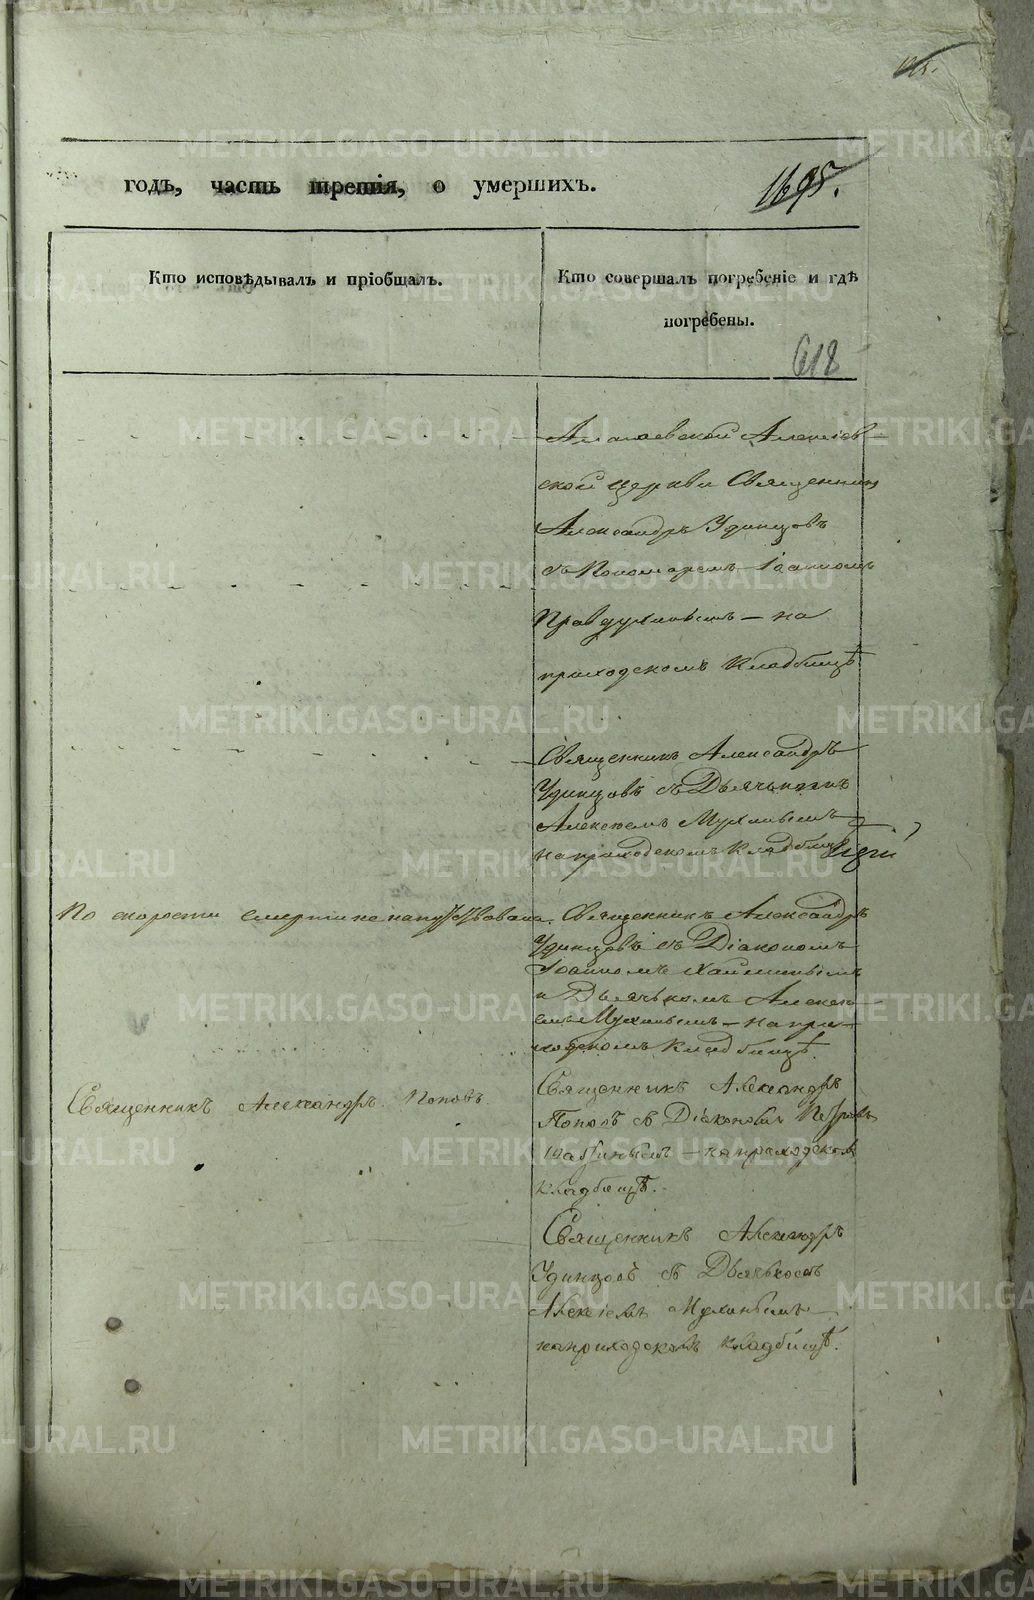 годъ, часть третія, о умершихъ.
1695.
Кто исповѣдывалъ и пріобщалъ.
Кто совершалъ погребеніе и гдѣ
погребены.
618
Алапаевской Алексіев-
ской церкви Священникъ
Александръ Удинцовъ
съ Пономаремъ Іоанномъ
Правдухинымъ – на
приходскомъ кладбищѣ
Священникъ Александръ
Удинцовъ съ Дьячькомъ
Алексѣемъ Мухинымъ
на приходскомъ кладбищѣ
По скорости смерти не напутствована.
Священникъ Александръ
Удинцовъ съ Діакономъ
Іоанномъ
и Дьячькомъ Алексѣ-
емъ Мухинымъ – на при-
ходскомъ кладбищѣ.
Священникъ Александръ Поповъ.
Священникъ Александръ
Поповъ съ Діакономъ Петромъ
– на приходскомъ
кладбищѣ.
Священникъ Александръ
Удинцовъ съ Дьячькомъ
Алексіемъ Мухинымъ
на приходскомъ кладбищѣ.
METRIKI.GASO-URAL.RU